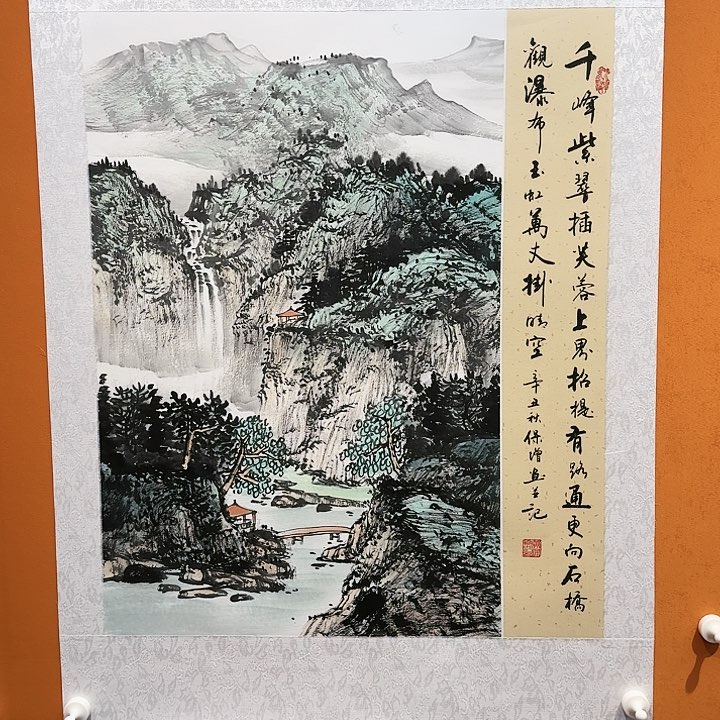 千峰紫翠插芙蓉上界招提有路通更向石橋
觀瀑布玉虹萬丈掛晴空 辛丑秋保增画並記